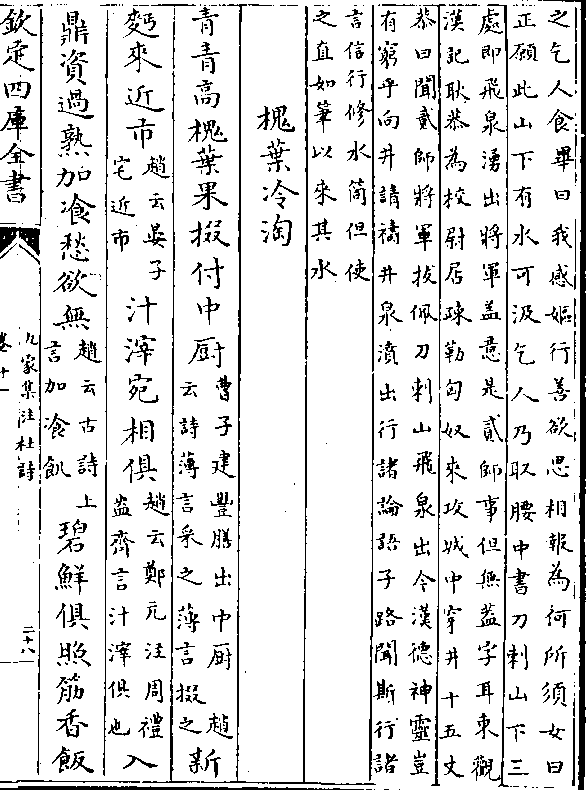 之乞人食畢曰我感嫗行善欲思相報為何所須女曰
正願此山下有水可汲乞人乃取腰中書刀刺山下三
處即飛泉湧出將軍蓋意是貳師事但無蓋字耳東觀
漢記耿恭為校尉居疎勒匈奴來攻城中穿井十五丈
恭曰聞貳師將軍拔佩刀刺山飛泉出今漢德神靈豈
有窮乎向井請禱井泉濆出行諸論語子路聞斯行諸
言信行修水筒但使
之直如筆以來其水
槐葉冷淘
青青高槐葉果掇付中厨曹子建豐膳出中厨趙
云詩薄言采之薄言掇之新
麪來近市趙云晏子
宅近市汁滓宛相俱趙云鄭元注周禮
盎齊言汁滓俱也入
鼎資過熟加飡愁欲無趙云古詩上
言加飡飢碧鮮俱照筯香飯
欽定四庫全書
九家集注杜詩
卷十一
二十八